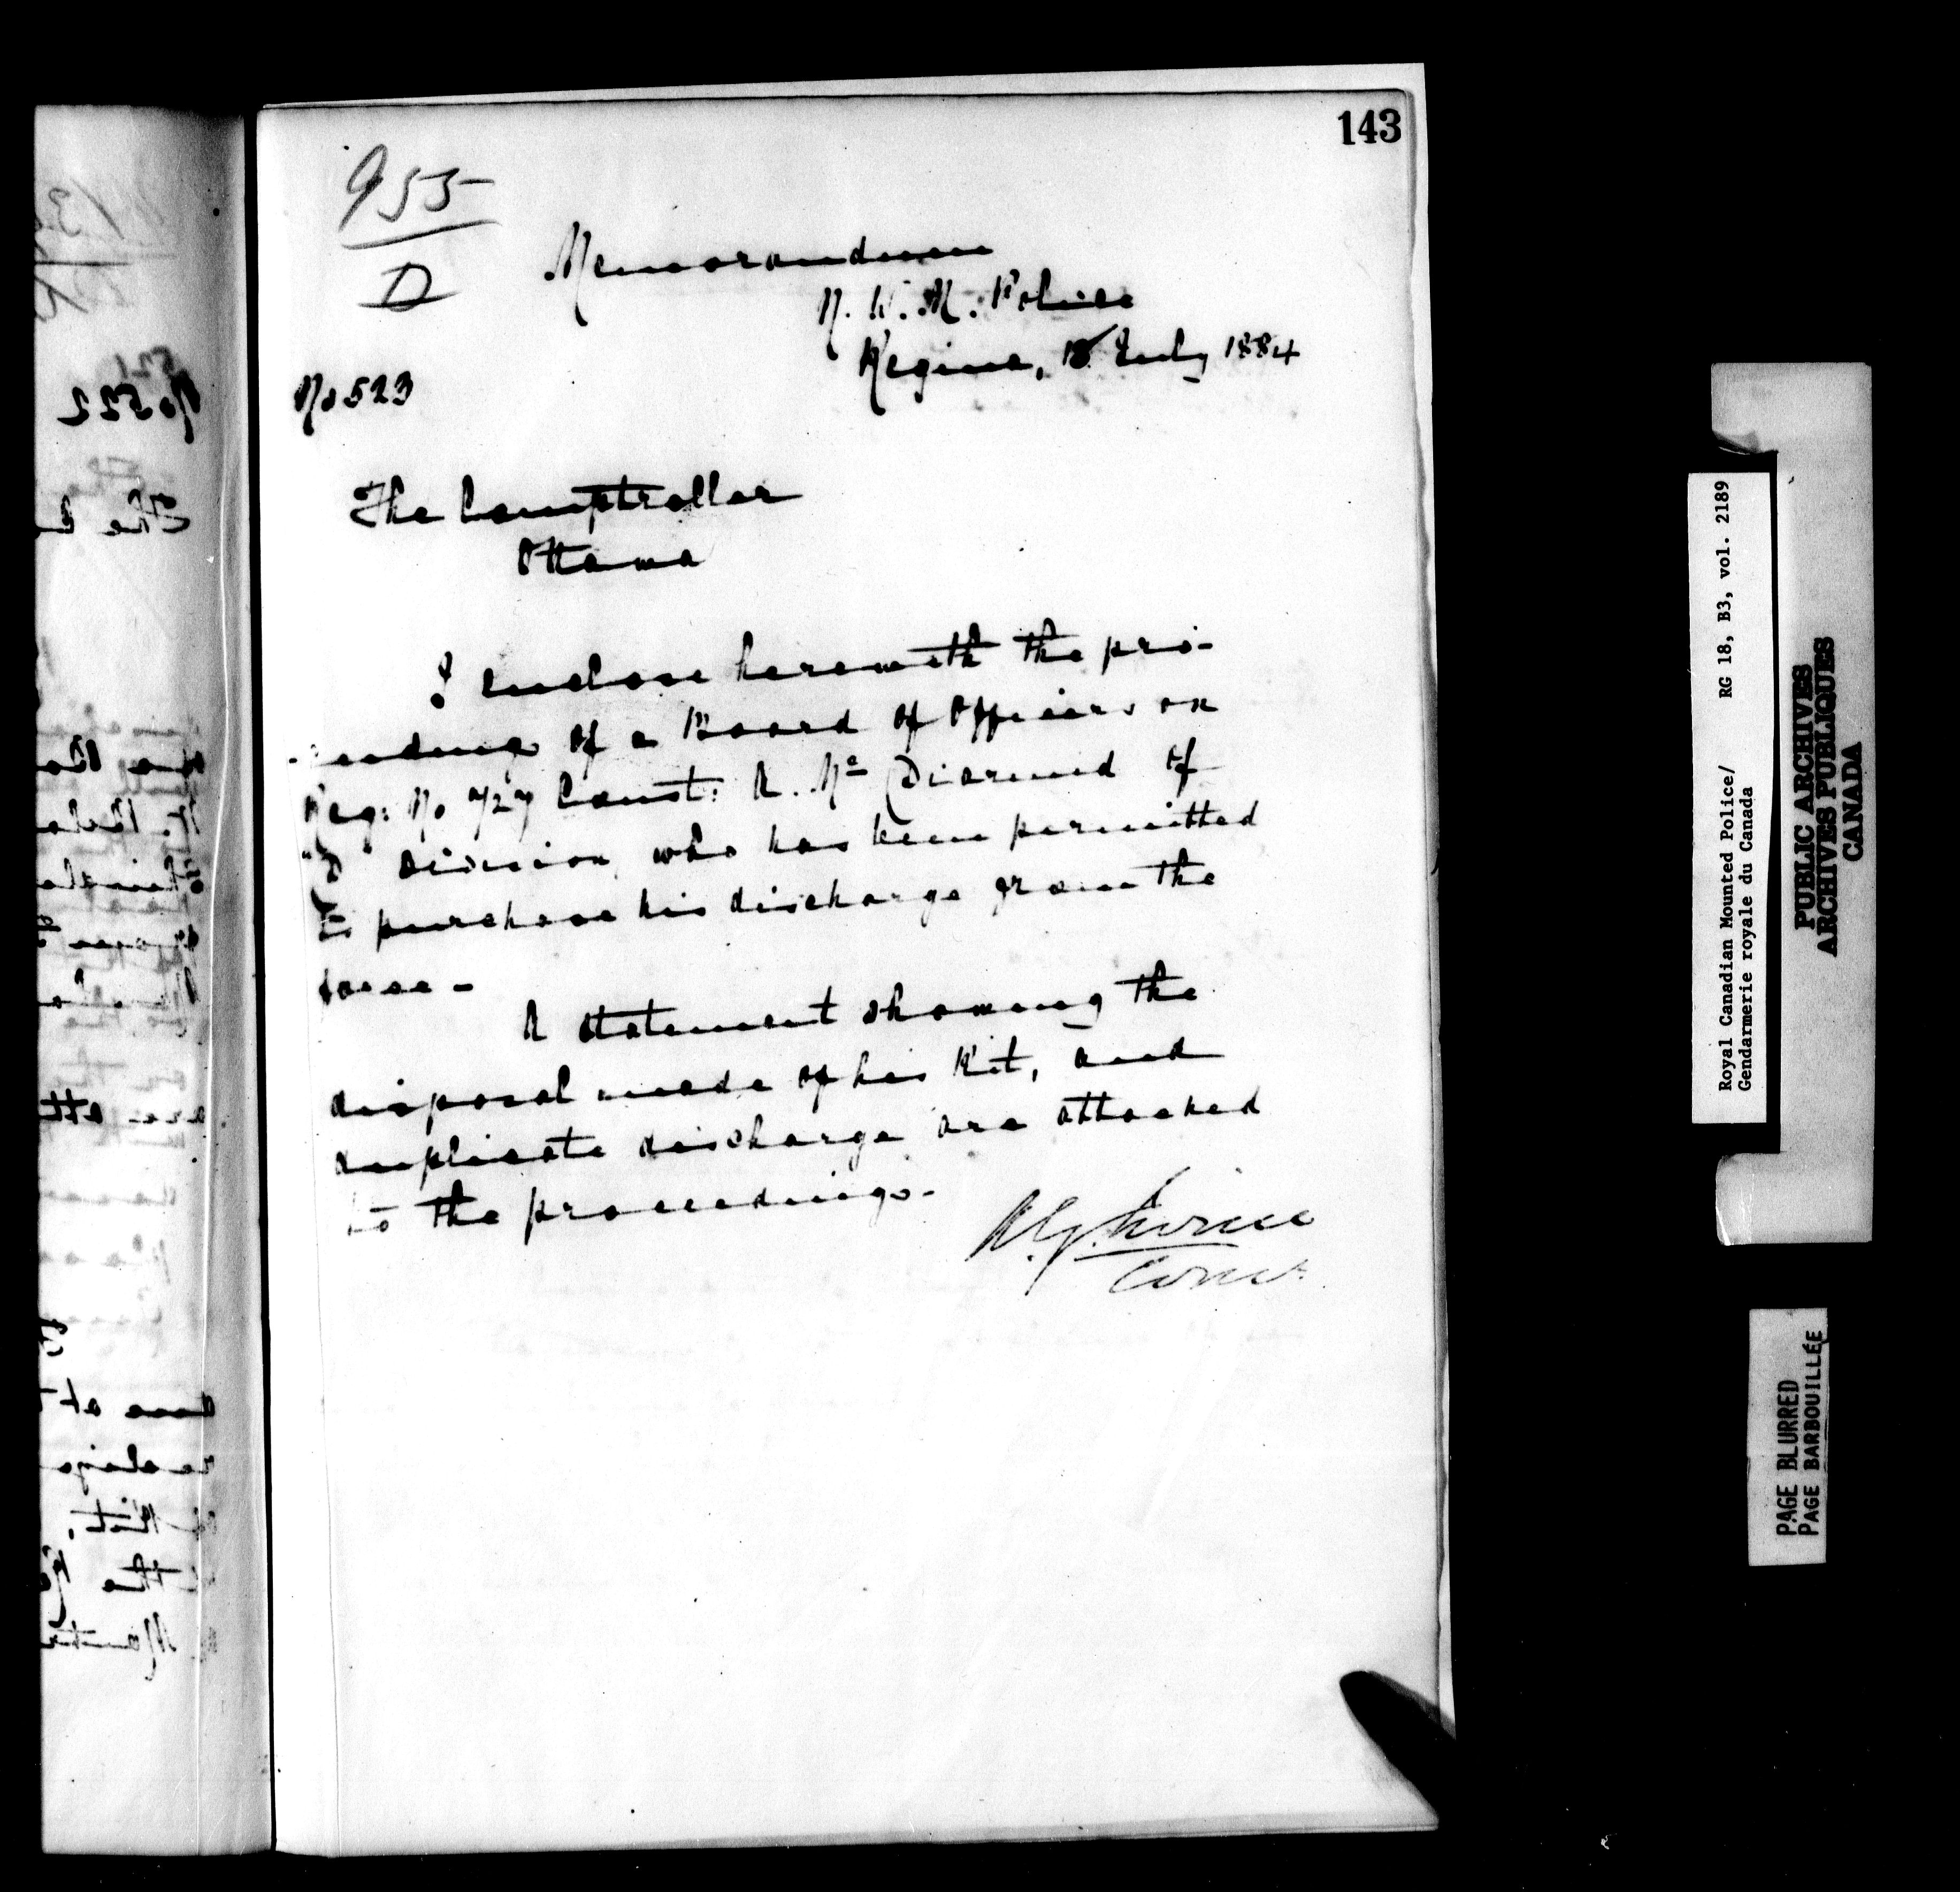 143
955
D
Memorandum
N. W. M. Police
Regina, 18 July 1884
No 523
The Comptroller
Ottawa
I enclose herewith the pro-
-ceedings of a Board of Officers on
Reg: No 727 Const: A. Mc Diarmid of
"D" Division who has been permitted
to purchase his discharge from the
force -
A statement showing the
disposal made of his Kit, and
duplicate discharge are attached
to the proceedings.
A. G. Irvine
Comr.
No 522
The
Royal Canadian Mounted Police/ RG 18, B3, vol. 2189
Gendarmerie royale du Canada
PUBLIC ARCHIVES
ARCHIVES PUBLIQUES
CANADA
PAGE BLURRED
PAGE BARBOUILLÉE